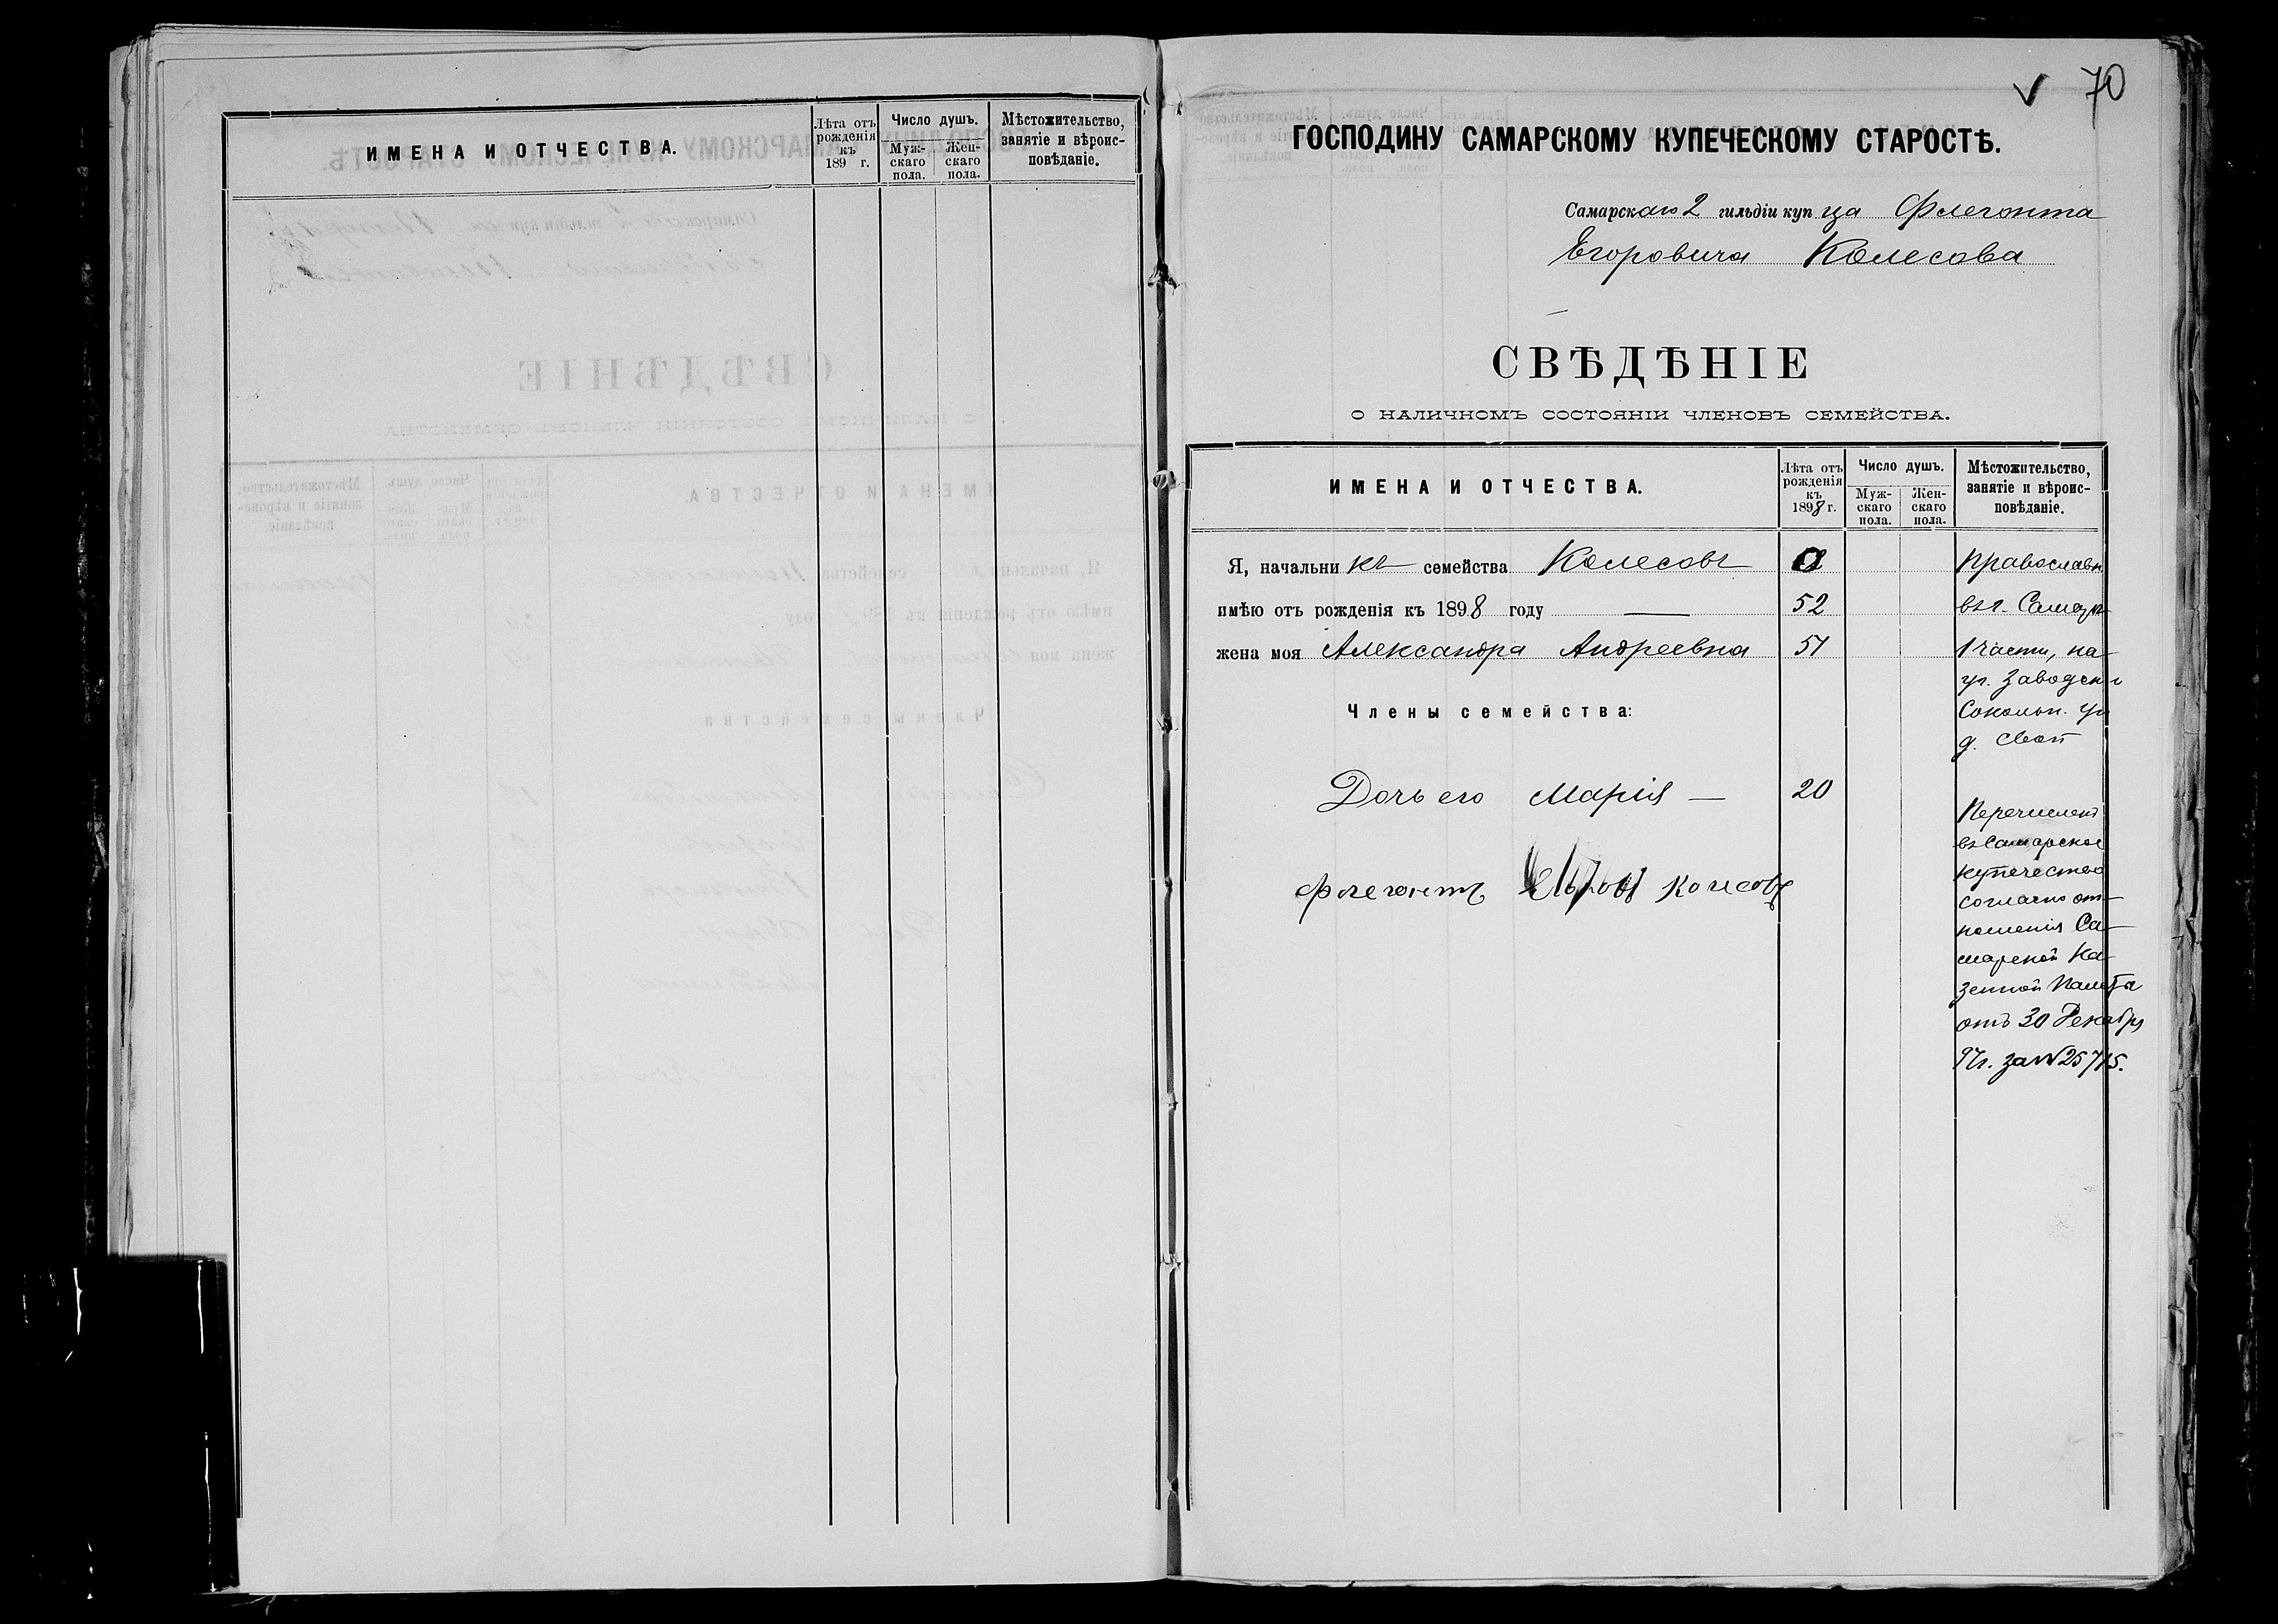 ИМЕНА И ОТЧЕСТВА.
Лѣта отъ рожденія къ 189 г.
Число душъ.
Мужскаго пола.
Женскаго пола.
Мѣстожительство, занятіе и вѣроисповѣданіе.
70
ГОСПОДИНУ САМАРСКОМУ КУПЕЧЕСКОМУ СТАРОСТѢ.
Самарскаго 2 гильдіи купца Флегонта
Егоровича Колесова
СВѢДѢНІЕ
О НАЛИЧНОМЪ СОСТОЯНІИ ЧЛЕНОВЪ СЕМЕЙСТВА.
ИМЕНА И ОТЧЕСТВА.
Лѣта отъ рожденія къ 1898 г.
Число душъ.
Мужскаго пола.
Женскаго пола.
Мѣстожительство, занятіе и вѣроисповѣданіе.
Я, начальникъ семейства Колесовъ
имѣю отъ рожденія къ 1898 году — 52
жена моя Александра Андреевна 51
Члены семейства:
Дочь его Марія — 20
Флегонтъ Колесовъ
Православн.
въ г. Самарѣ
1 части, на
уг. Заводск. и
Сокольн. ул
д. свой
Перечисленъ
въ Самарское
купечество
согласно от-
ношенія Са-
марской Ка-
зенной Палаты
отъ 30 Декабря
97 г. за № 25715.